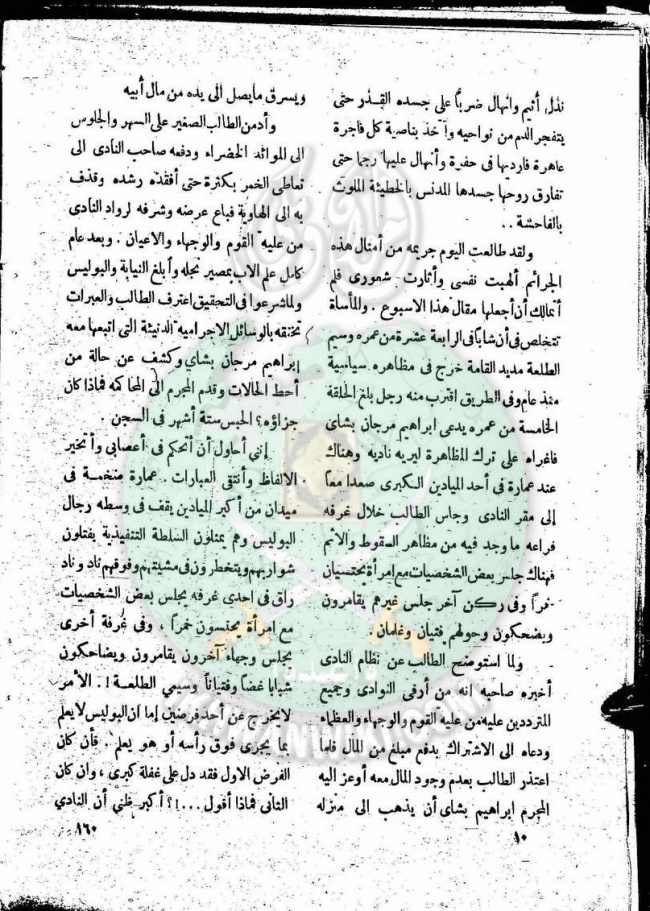 نذل، أثيم وانهال ضربًا على جسده القذر حتى
يتفجر الدم من نواحيه وآخذ بناصية كل فاجرة
عاهرة فارديها فى حفرة وأنهال عليها رجما حتى
تفارق روحها جسدها المدنس بالخطيئة الملوث
بالفاحشة . .
ولقد طالعت اليوم جريمه من أمثال هذه
الجرائم ألهبت نفسى وأثارت شعورى فلم
أتمالك أن أجعلها مقال هذا الاسبوع . والمأساة
تتلخص فى أن شابًا فى الرابعة عشرة من عمره وسيم
الطلعة مديد القامة خرج فى مظاهره سياسية
منذ عام وفى الطريق اقترب منه رجل بلغ الحلقة
الخامسة من عمره يدعى ابراهيم مرجان بشاى
فاغراه على ترك المظاهرة ليريه ناديه وهناك
عند عمارة فى أحد الميادين الكبرى صعدا معًا
إلى مقر النادى وجاس الطالب خلال غرفه
فراعه ما وجد فيه من مظاهر السقوط والاثم
فهناك جلس بعض الشخصيات مع امرأة يحتسيان
خمرًا وفى ركن آخر جلس غيرهم يقامرون
ويضحكون وحولهم فتيان وغلمان .
ولما استوضح الطالب عن نظام النادى
أخبره صاحبه انه من أرقى النوادى وجميع
المترددين عليه من علية القوم والوجهاء والعظماء
ودعاه الى الاشتراك بدفع مبلغ من المال فلما
اعتذر الطالب بعدم وجود المال معه أوعز اليه
المجرم ابراهيم بشاى أن يذهب إلى منزله
١٠
ويسرق مايصل الى يده من مال أبيه
وأدمن الطالب الصغير على السهر والجلوس
الى الموائد الخضراء ودفعه صاحب النادى الى
تعاطى الخمر بكثرة حتى أفقدته رشده وقذف
به الى الهاوية فباع عرضه وشرفه لرواد النادى
من علية القوم والوجهاء والاعيان . وبعد عام
كامل علم الاب بمصير نجله وأبلغ النيابة والبوليس
ولما شرعوا فى التحقيق اعترف الطالب والعبرات
تخنقه بالوسائل الاجراميه الدنيئة التى اتبعها معه
ابراهيم مرجان بشاي وكشف عن حالة من
أحط الحالات وقدم المجرم الى المحاكمه فماذا كان
جزاؤه؟ الحبس ستة أشهر فى السجن .
إننى أحاول أن أتحكم فى أعصابى وأتخير
الالفاظ وأنتقى العبارات . عمارة متخمة فى
ميدان من أكبر الميادين يقف فى وسطه رجال
البوليس وهم يمثلون السلطة التنفيذية يفتلون
شواربهم ويتخطرون فى مشيتهم وفوقهم ناد وناد
راق فى احدى غرفه يجلس بعض الشخصيات
مع إمرأة يحتسون خمرًا ، وفى غرفة أخرى
يجلس وجهاء آخرون يقامرون ويضاحكون
شبابا غضًا وفتيانًا وسيمى الطلعة ! . الأمر
لا يخرج عن أحد فرضين إما ان البوليس لا يعلم
بما يجرى فوق رأسه أو هو يعلم . فأن كان
الفرض الاول فقد دل على غفلة كبرى ، وان كان
الثانى فماذا أقول ...!؟ أكبر ظني أن النادي
١٦٠